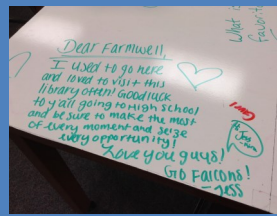 What is
favorite
Dear Farmwell,
I used to go here
and loved to visit this
library often! Good luck
to y'all going to High school
and be sure to make the most
of every moment and seize
every opportunity!
Love you guys!
Go Falcons!
-Jess